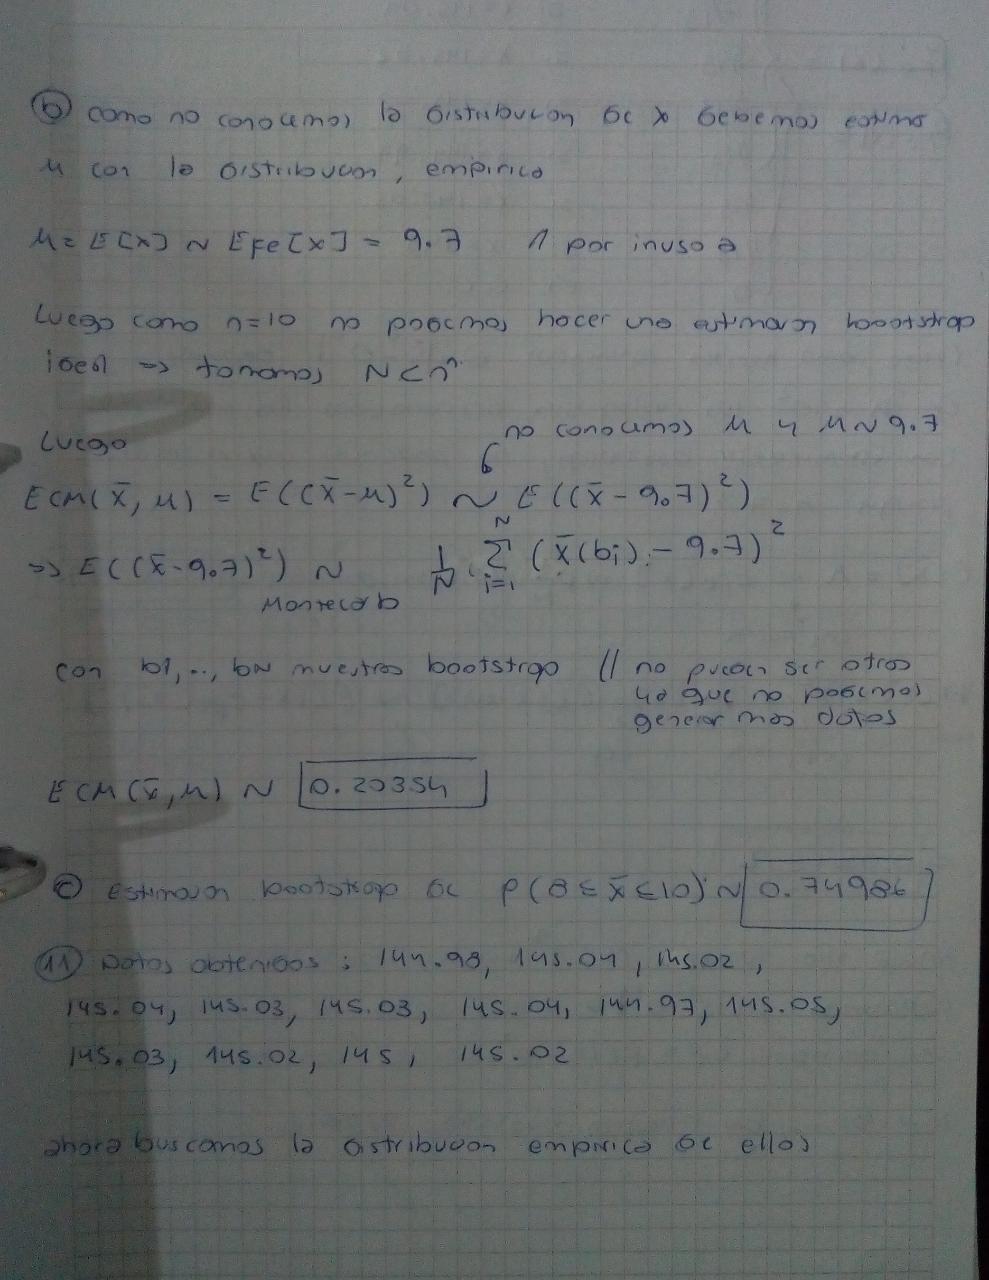 b) como no conocemos la distribucion de x debemos estimar
μ con la distribucion, empirica
μ = E[x] ~ EFe[x] = 9.7 1 por inciso a
Luego como n=10 no podemos hacer una estimacion bootstrap
ideal => tomamos N < nⁿ
Luego no conocemos μ y μ ~ 9.7
ECM(x̄, μ) = E((x̄-μ)²) ~ E((x̄ - 9.7)²)
=> E((x̄-9.7)²) ~ 1/N . Σ (x̄(bi) - 9.7)²
N
i=1
Montecarlo
con b1, .., bN muestras bootstrap // no pueden ser otros
ya que no podemos
generar mas datos
ECM(x̄, μ) ~ 0.20354
c) Estimacion bootstrap de P(8 ≤ x̄ ≤ 10) ~ 0.74986
11) Datos obtenidos : 144.98, 145.04, 145.02,
145.04, 145.03, 145.03, 145.04, 144.97, 145.05,
145.03, 145.02, 145, 145.02
ahora buscamos la distribucion empirica de ellos